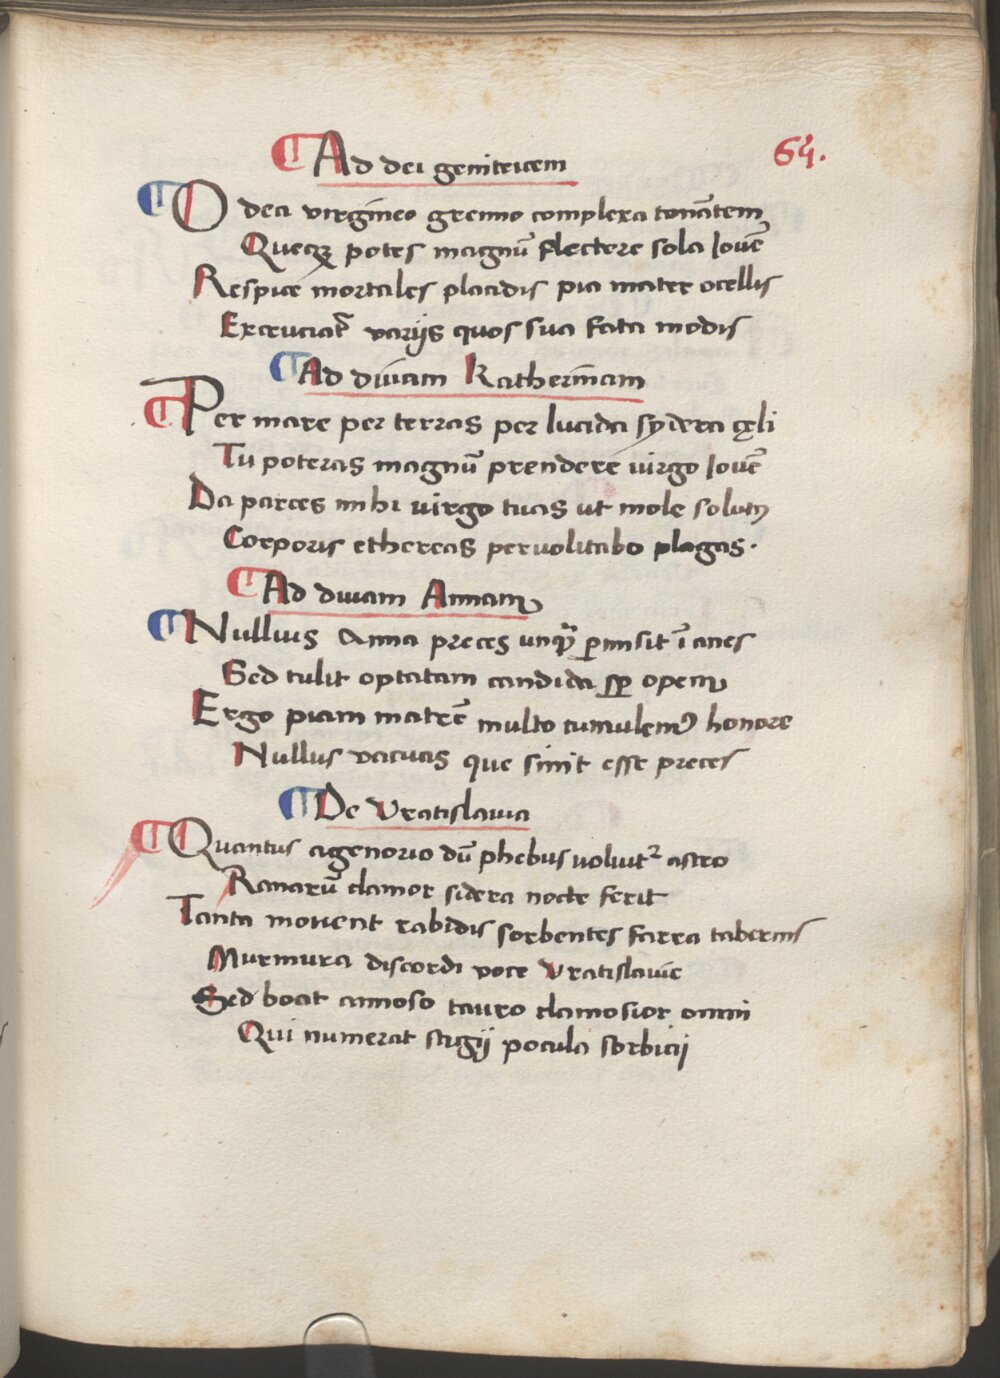 64.
Ad dei genitricem
O dea virgineo gremio complexa tonãtem
Quecꝫ potes magnũ flectere sola Iovẽ
Respice mortales placidis pia mater ocellis
Excruciat varijs quos sua fata modis
Ad divam Katherinam
Per mare per terras per lucida sydera cęli
Tu poteras magnũ prendere virgo Iovẽ
Da parces mihi virgo tuas ut mole solutꝰ
Corporis ethereas pervolitabo plagas.
Ad divam Annam
Nullius Anna preces unqͣꝫ ꝑmisit ĩanes
Sed tulit optatam candida sꝑ opem
Ergo piam matrẽ multo cumulemꝰ honore
Nullus vacuas que sinit esse preces
De Vratislavia
Quantus agenorio dũ phebus volvit᷑ astro
Ranarũ clamor sidera nocte ferit
Tanta movent rabidis sorbentes farra tabernis
Murmura discordi voce Vratislavie
Sed boat annoso tauro clamosior omni
Qui numerat stigij pocula sorbicij